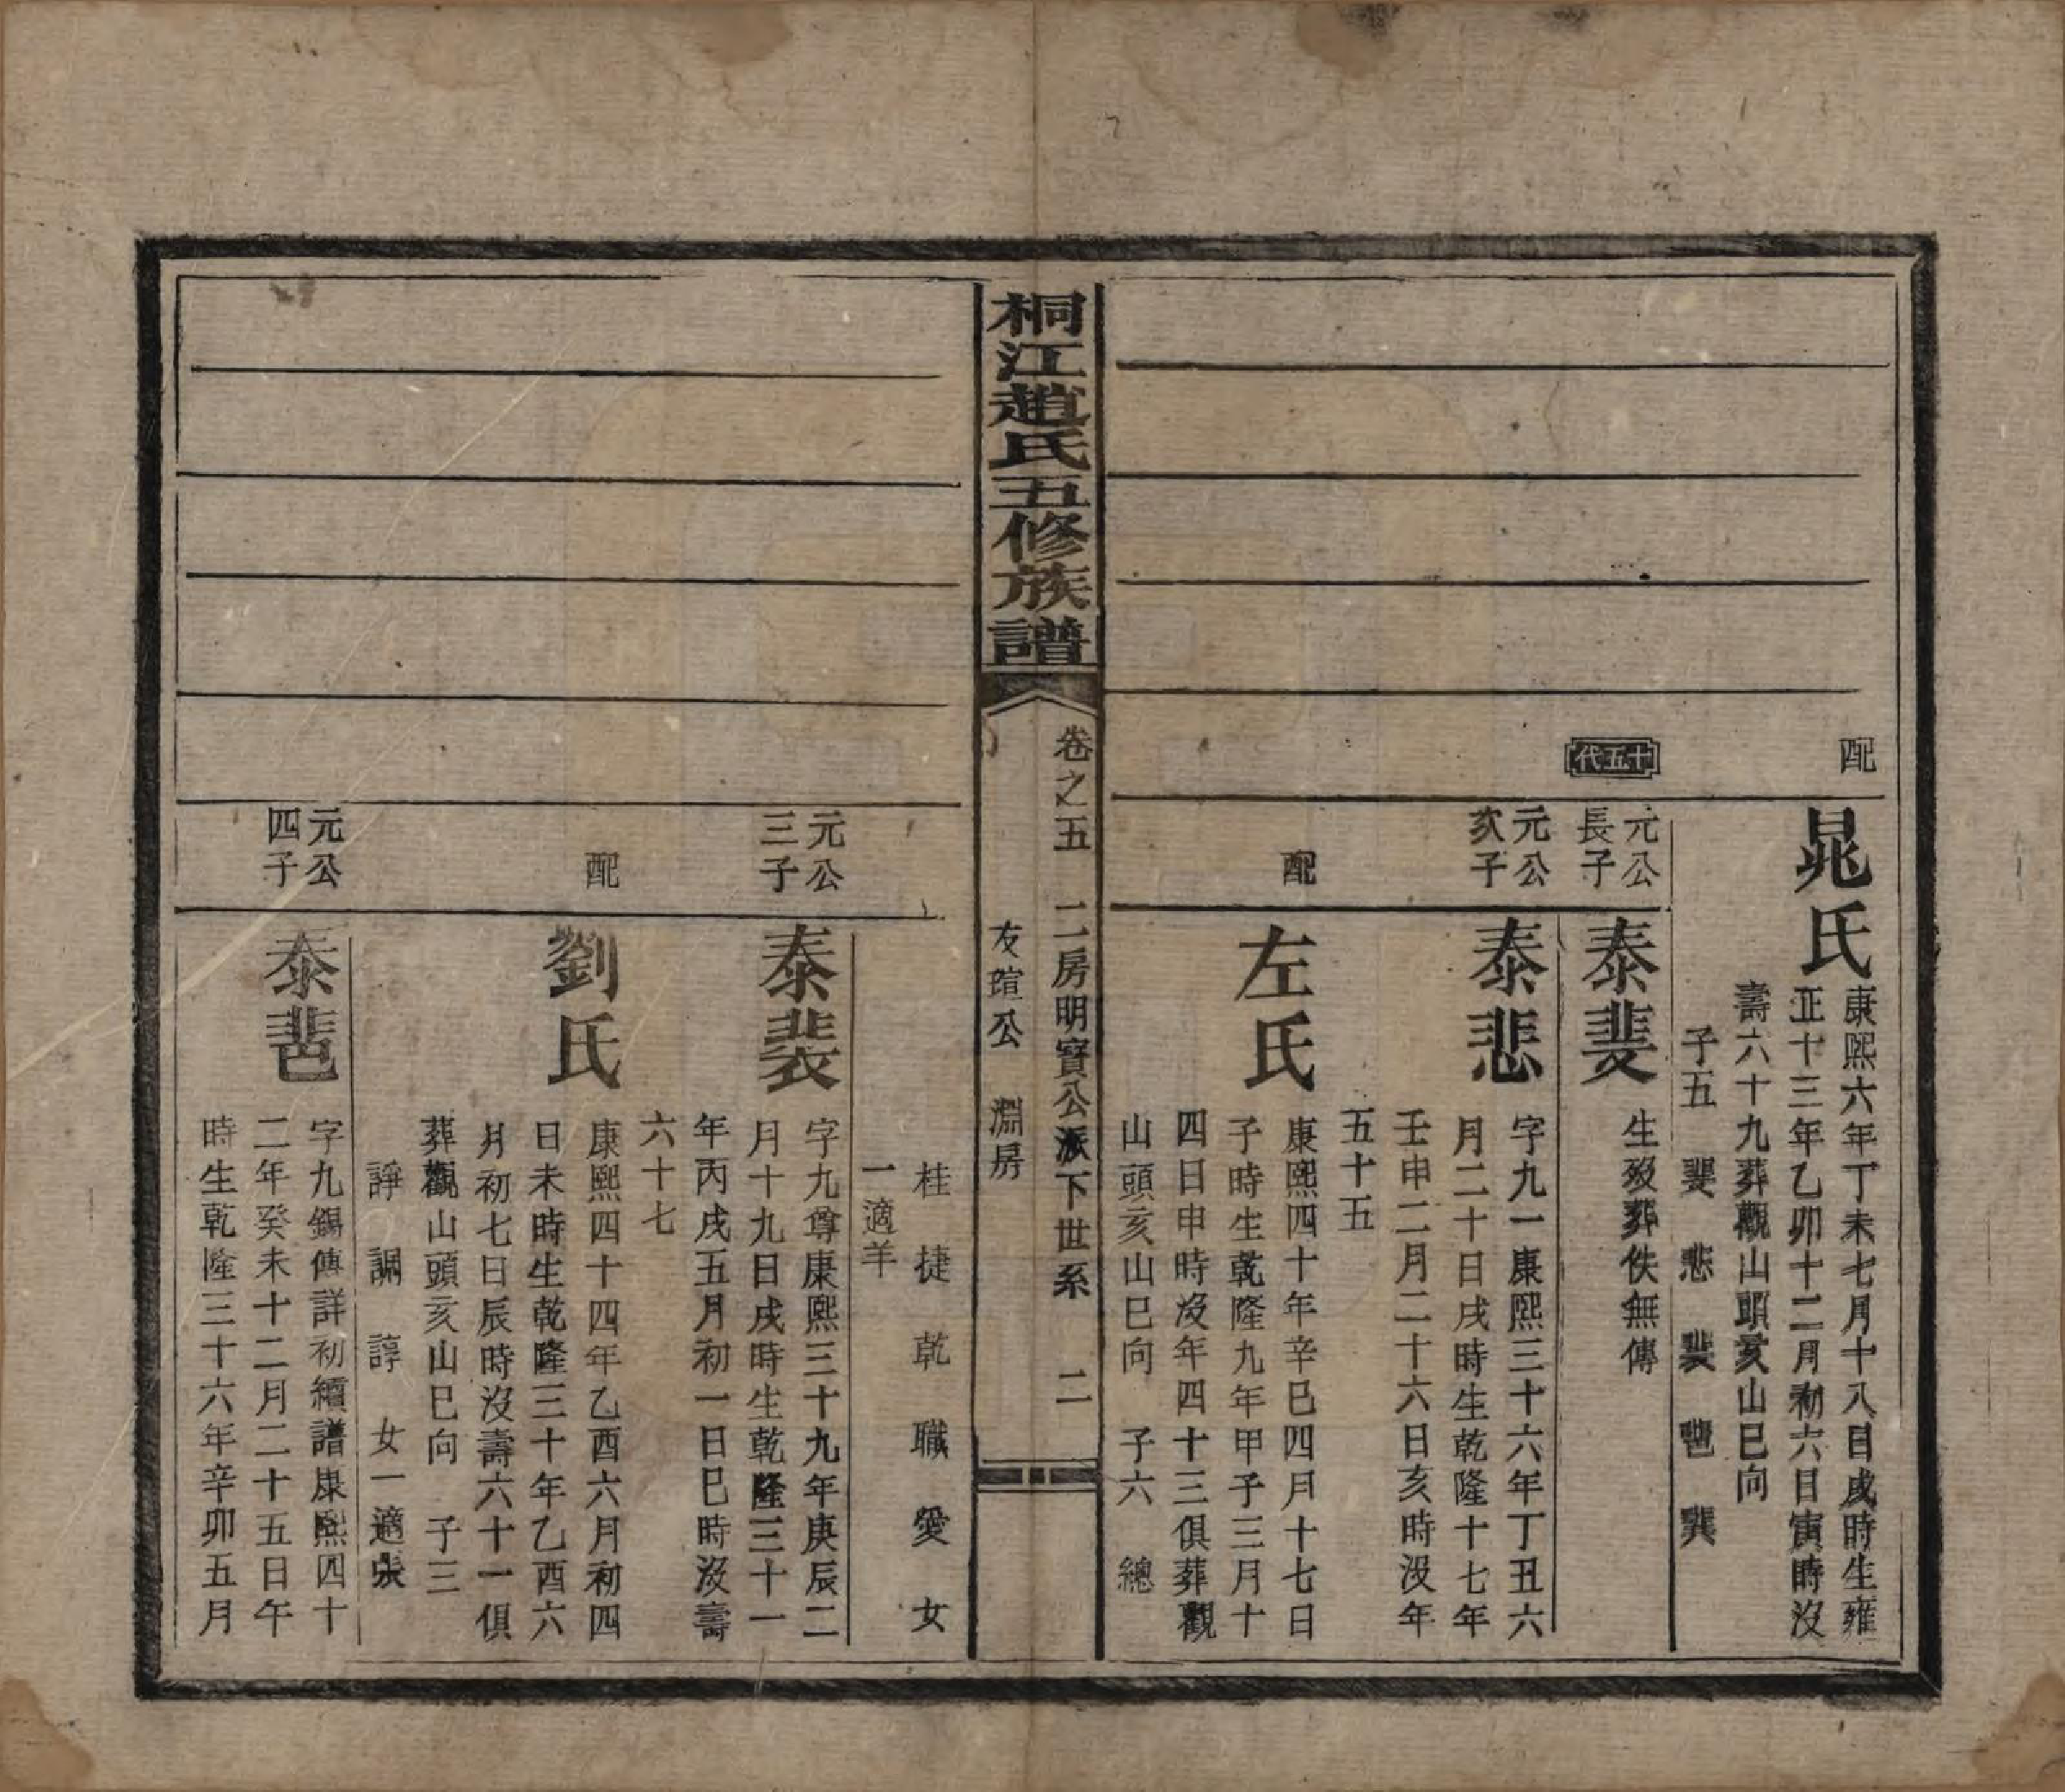 配
晁氏
康熙六年丁未七月十八日戌時生雍
正十三年乙卯十二月初六日寅時沒
壽六十九葬觀山頭亥山巳向
子五 婓 悲 裴 𨛬 龔
十五代
元公
長子
泰婓
生歿葬佚無傳
元公
次子
泰悲
字九一康熙三十六年丁丑六
月二十日戌時生乾隆十七年
壬申二月二十六日亥時沒年
五十五
配
左氏
康熙四十年辛巳四月十七日
子時生乾隆九年甲子三月十
四日申時沒年四十三俱葬觀
山頭亥山巳向 子六 總
桐江趙氏五修族譜
卷之五 二房明寶公派下世系 二
友暄公 淵房
桂 捷 乾 職 愛 女
一適羊
元公
三子
泰裴
字九尊康熙三十九年庚辰二
月十九日戌時生乾隆三十一
年丙戌五月初一日巳時沒壽
六十七
配
劉氏
康熙四十四年乙酉六月初四
日未時生乾隆三十年乙酉六
月初七日辰時沒壽六十一俱
葬觀山頭亥山巳向 子三
諍 諷 諄 女一適張
元公
四子
泰
字九錫傳詳初續譜康熙四十
二年癸未十二月二十五日午
時生乾隆三十六年辛卯五月